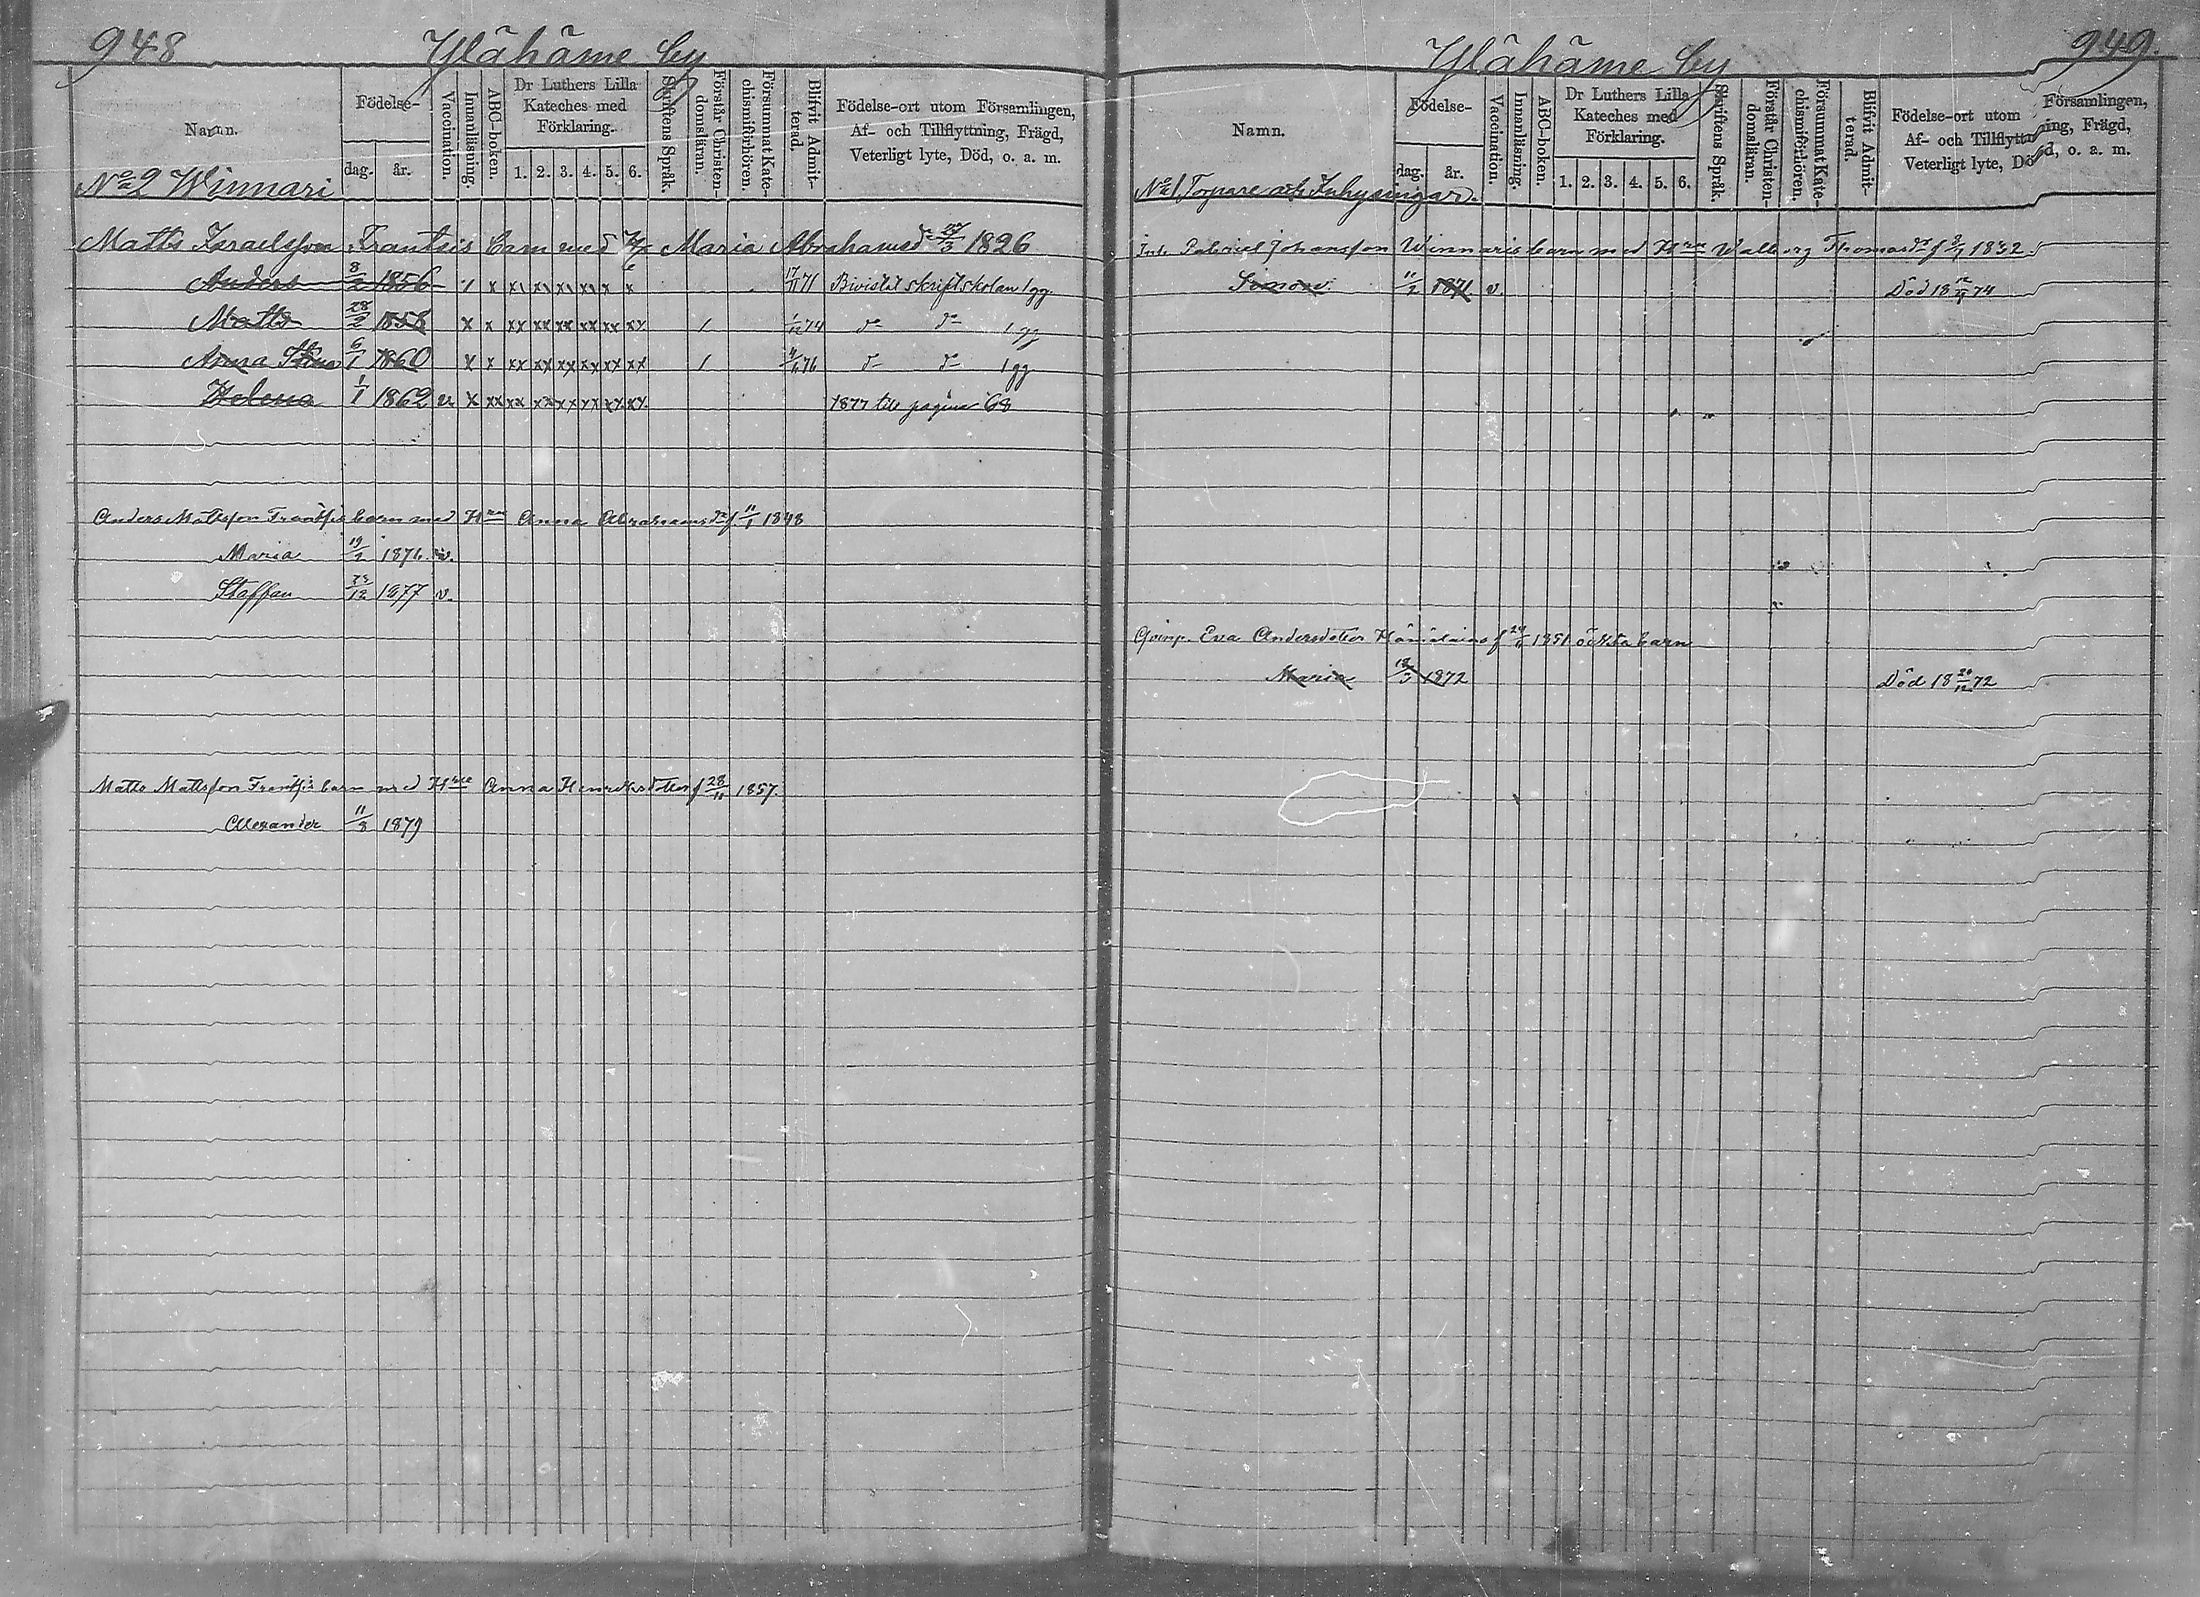 948
Ylähäme by
Namn.
Födelse-
dag.
år.
Vaccination.
Innanläsning.
ABC-boken.
Dr Luthers Lilla
Kateches med
Förklaring.
1. 2. 3. 4. 5. 6.
Skriftens Språk.
Förstår Christen-
domsläran.
Försummat Kate-
chismiförhören.
Blifvit Admit-
terad.
Födelse-ort utom Församlingen,
Af- och Tillflyttning, Frägd,
Veterligt lyte, Död, o. a. m.
No 2 Winnari
Matts Israelsson Frantsis barn med H. Maria Abrahamsdr 1826
Anders 8/2 1856 x xx xx xx x x x 17/11 71 Bivistat skriftskolan 1 gg
Matts 28/2 1858 x x xx xx xx xx xx xx 1 1/12 74 do do 1 gg
Anna 6/1 1860 x x xx xx xx xx xx xx 1 76 do do 1 gg
Helena 1/1 1862 v. x xx xx xx xx xx xx xx. 1877 till pagina 68
Anders Mattsson Frantsis barn med Hru Anna Abrahamsdr f 11/1 1848
Maria 19/2 1876 v.
Staffan 12 1877 v.
Matts Mattsson Frantsis barn med Hru Anna Henriksdotter f 28/11 1857.
Alexander 11/3 1879
949.
Ylähäme by
Namn.
Födelse-
dag.
år.
Vaccination.
Innanläsning.
ABC-boken.
Dr Luthers Lilla
Kateches med
Förklaring.
1. 2. 3. 4. 5. 6.
Skriftens Språk.
Förstår Christen-
domsläran.
Försummat Kate-
chismiförhören.
Blifvit Admit-
terad.
Födelse-ort utom Församlingen,
Af- och Tillflyttning, Frägd,
Veterligt lyte, Död, o. a. m.
No 1 Torpare och Inhysingar.
Inh. Gabriel Johansson Winnaris barn med Hru Walborg Thomasdr f 1832
Simon 11/2 1871 v. Död 18 74
Qvinp. Eva Andersdotter Hämäläins f 1851 oäkta barn
Maria 18/3 1872 Död 18 20/12 72